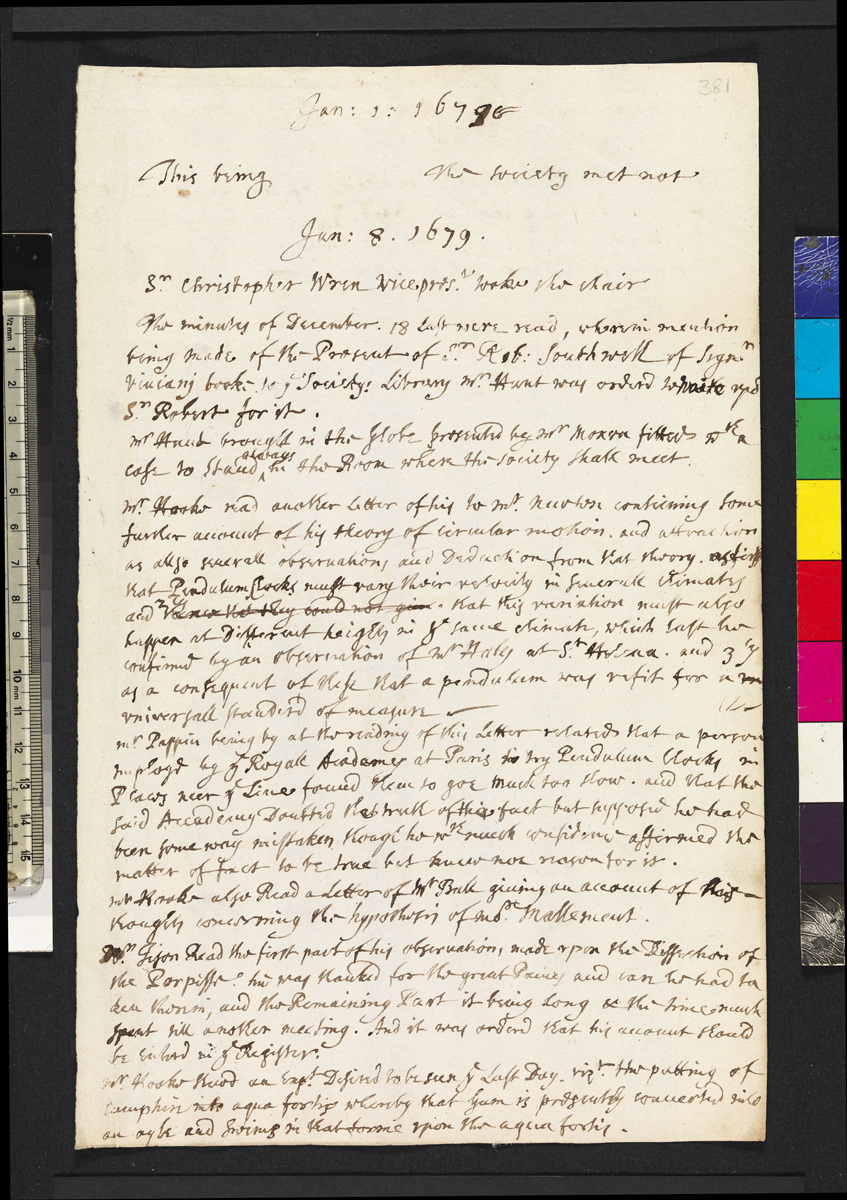 381
Jan: 1: 1679
This being the society met not
Jan: 8. 1679.
Sr. Christopher Wren Vicepres.t tooke the chair
The minutes of December. 18 last were read, wherein mention
being made of the Present of Sr. Rob: Southwell of Signr
Vivianj booke to ye Society: Library Mr. Hunt was orderd to write
Sr. Robert for it.
Mr Hunt brought in the Globe presented by Mr Moxon fitted wth a
case to stand always in the Room where the Society shall meet.
Mr. Hooke read another Letter of his to Mr. Newton contining some
further account of his theory of circular motion. and attraction
as also severall observations and Deduction from that theory. as first
that Pendulum Clocks must vary their velocity in severall climates
and 2ly that this variation must also
happen at Different heights in ye same climate, which last he
confirmd by an observation of Mr Haly at St. Helena. and 3ly
as a consequent of these that a pendulum was vnfit for a
vniversall standerd of measure
Mr. Pappin being by at the reading of this Letter related that a person
imployd by ye Royall Academe at Paris to try Pendulum Clocks in
Places neer ye Line found them to goe much too slow. and that the
said Accademy Doubted the truth of this fact but supposed he had
been some way mistaken though he wth much confidence affirmed the
matter of fact to be true but knew noe reason for it.
Mr Hooke also Read a Letter of Mr Ball giving an account of his
thoughts concerning the hypothesis of Mr. Mallement.
Dr. Tison Read the first part of his observations made vpon the Dissection of
the Porpisse. he was thanked for the great Paines and care he had ta
ken therin, and the Remaining Part it being Long & the time much
spent till another meeting. And it was orderd that his account should
be Enterd in ye Register.
Mr Hooke shewd an Expt. Desired to be seen ye Last Day. vizt. the putting of
Camphire into aqua fortis whereby that Gum is presently converted into
an oyle and swims in that forme vpon the aqua fortis.